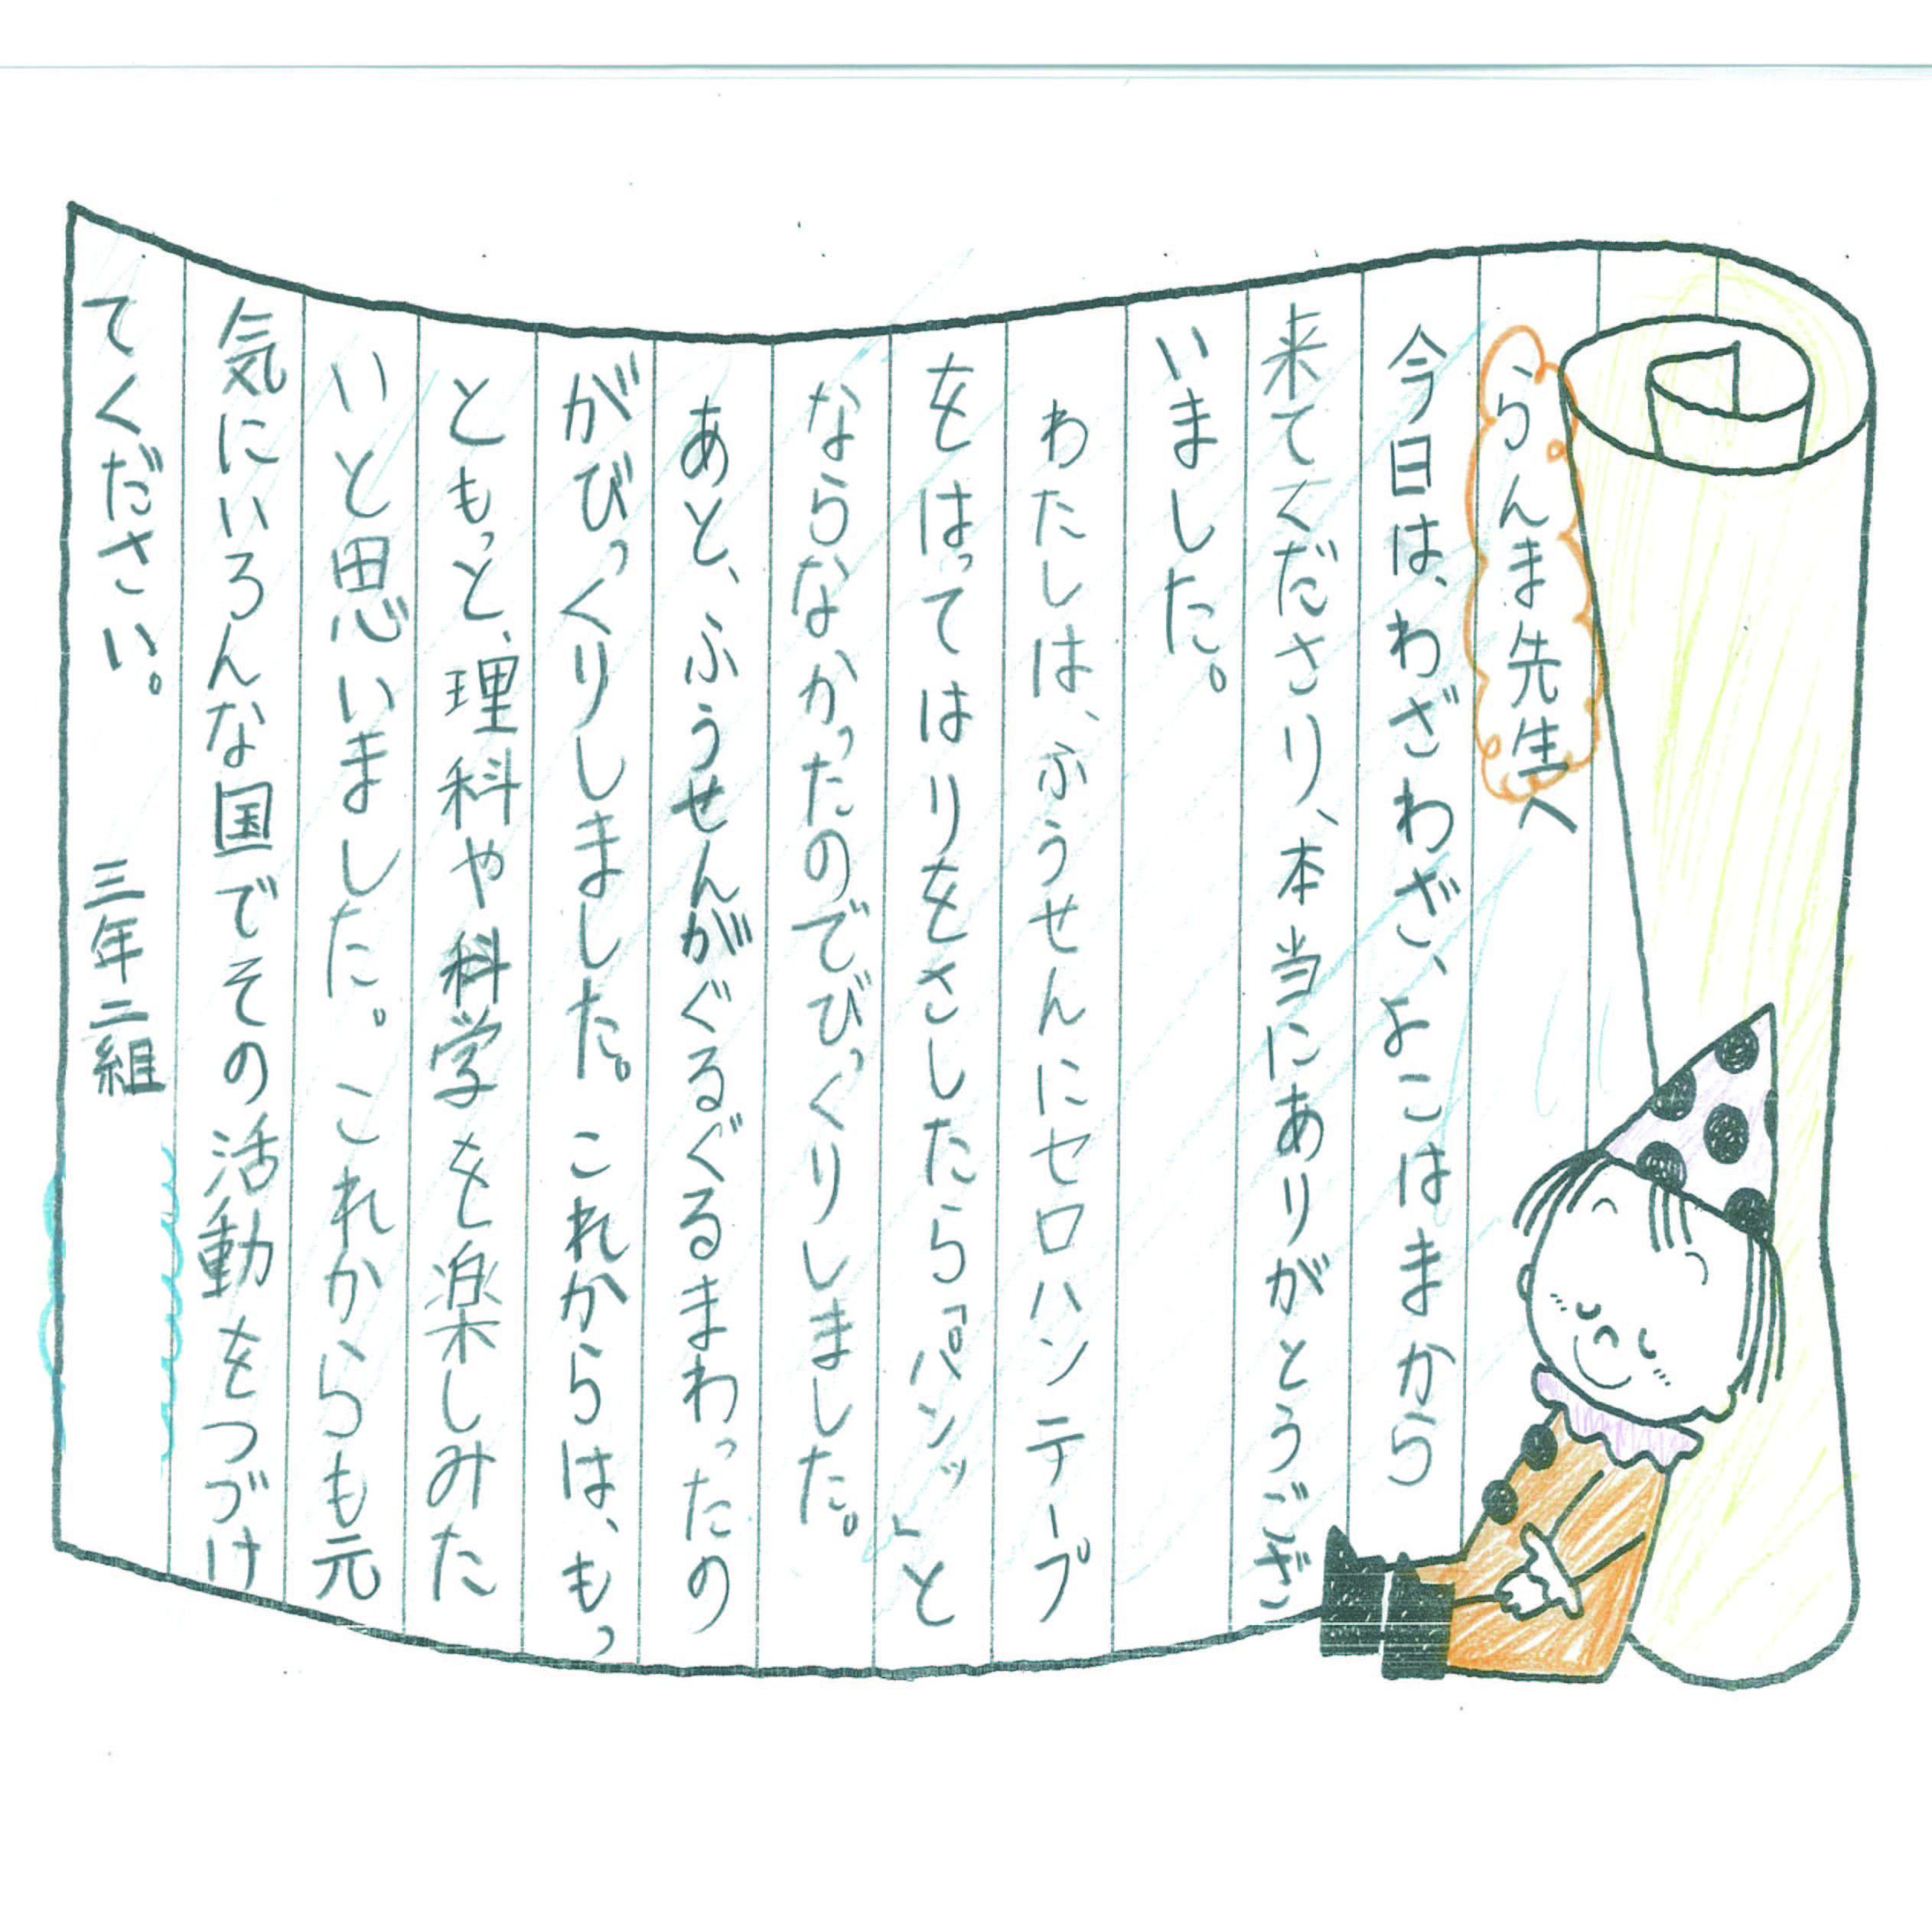 らんま先生へ
今日は、わざわざ、よこはまから
来てくださり、本当にありがとうござ
いました。
わたしは、ふうせんにセロハンテープ
をはってはりをさしたら「パンッ」と
ならなかったのでびっくりしました。
あと、ふうせんがぐるぐるまわったの
がびっくりしました。これからは、もっ
ともっと、理科や科学を楽しみた
いと思いました。これからも元
気にいろんな国でその活動をつづけ
てください。 三年二組